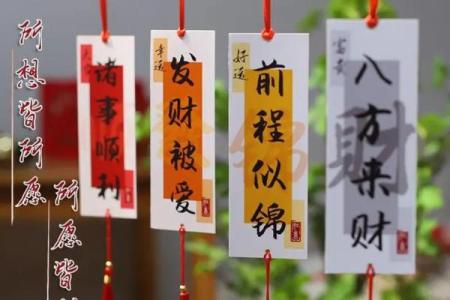 所想皆所愿
所愿皆
诸事顺利
幸运
发财被爱
好运
前程似锦
富贵
八方来财
財